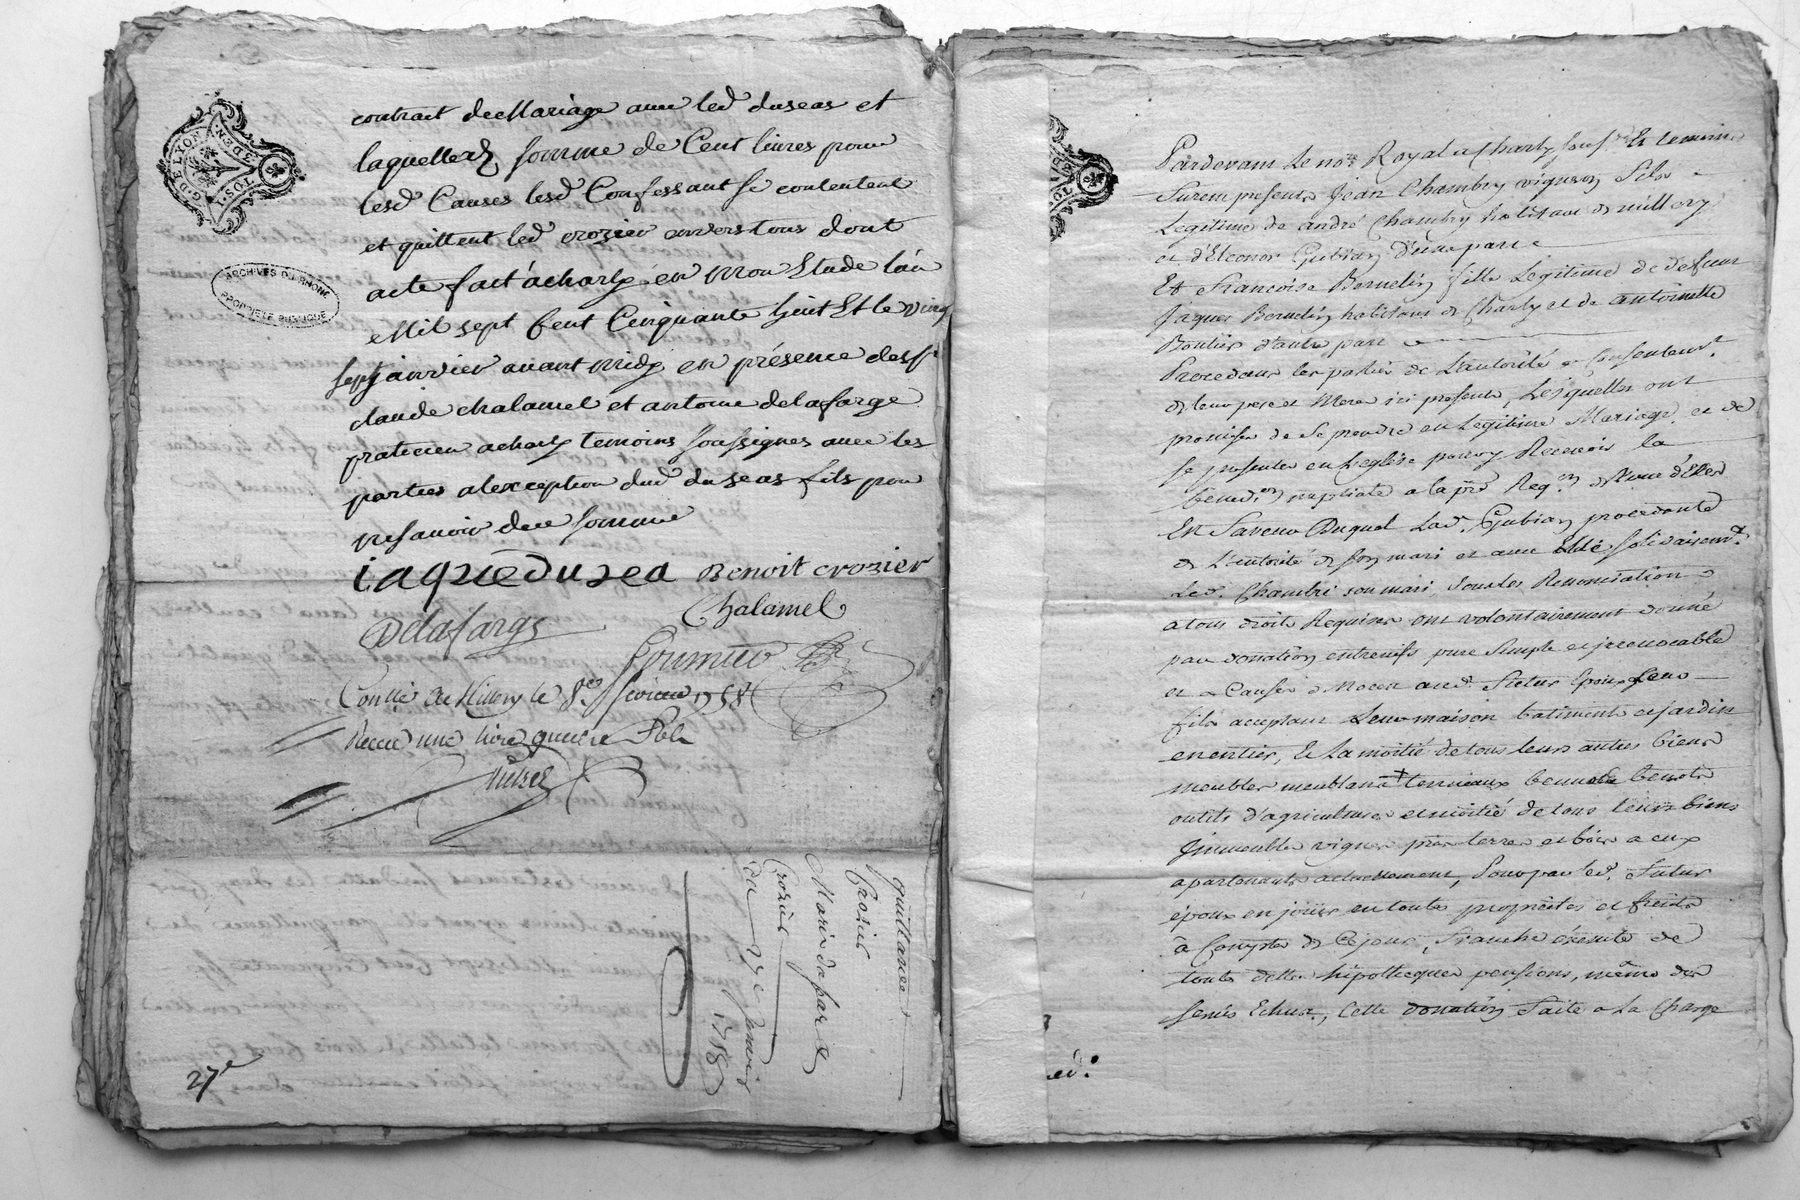 contract de Mariage avec led duseas et
laquelle d somme de Cent livres pour
lesd Causes lesd Confessant se contentent
et quittent led crozier envers tous dont
acte fait à charly en mon Etude lan
Mil sept Cent Cinquante huit Et le ving
sept janvier avant midy en présence des Sr
claude chalamel et antoine delafarge
praticien a charly temoins soussignes avec les
parties alexception dud duseas fils pour
ne savoir de ce somme
iaque duzea Benoit crozier
Chalamel
Delafarge
Con lé A Millery le 8e fevrier 1758
Receu une livre
27e
quittance
Crozier
Marie
Crozier
du 27e Janvier
1758
G. DE LYON
3 DEN.
TOS
ARCHIVES DU RHONE
PROPRIÉTÉ PUBLIQUE
Pardevant Le nore Royal a Charly sous Et temoins
Furent presents Jean Chambry vigneron fils
Legitime de andré Chambry habitant de millery
et d'Eleonor Gubian D'une part
Et Francoise Bernelin fille Legitime de defunt
Jaques Bernelin habitant de Charly et de antoinette
Boutier d'autre part
Procedant les parties de L'autorité et Consentemt.
de leur pere et Mere ici presents, Lesquelles ont
promises de Se prendre en Legitime Mariage et de
se presenter en L'eglise pour y Recevoir la
bened.on nuptiale a la pre Reqon de l'une d'Elles
En Faveur Duquel La d. Gubian procedante
de L'autorité de son mari et avec Elle solidairemt.
Le d. Chambri son mari, sous les Renonciations
a tous droits Requises ont volontairement donné
par donation entrevifs pure Simple et jrrevocable
et a Cause de Mort aud. Futur Epoux Leur
fils acceptant Leur maison batiment et jardin
en entier, Et La moitié de tous leurs autres biens
meubles meublants + benne benots
outils d'agriculture et moitié de tous leurs biens
Jmmeubles vignes prés terres et bois a eux
apartenants actuellement, Pour par led. Futur
époux en joüir en toutes proprietés et fruits
à Compter de Ce jour, Franche exempte de
toute dettes hipotheques pensions, même des
servis Echus, Cette donation Faite a La Charge
ed.